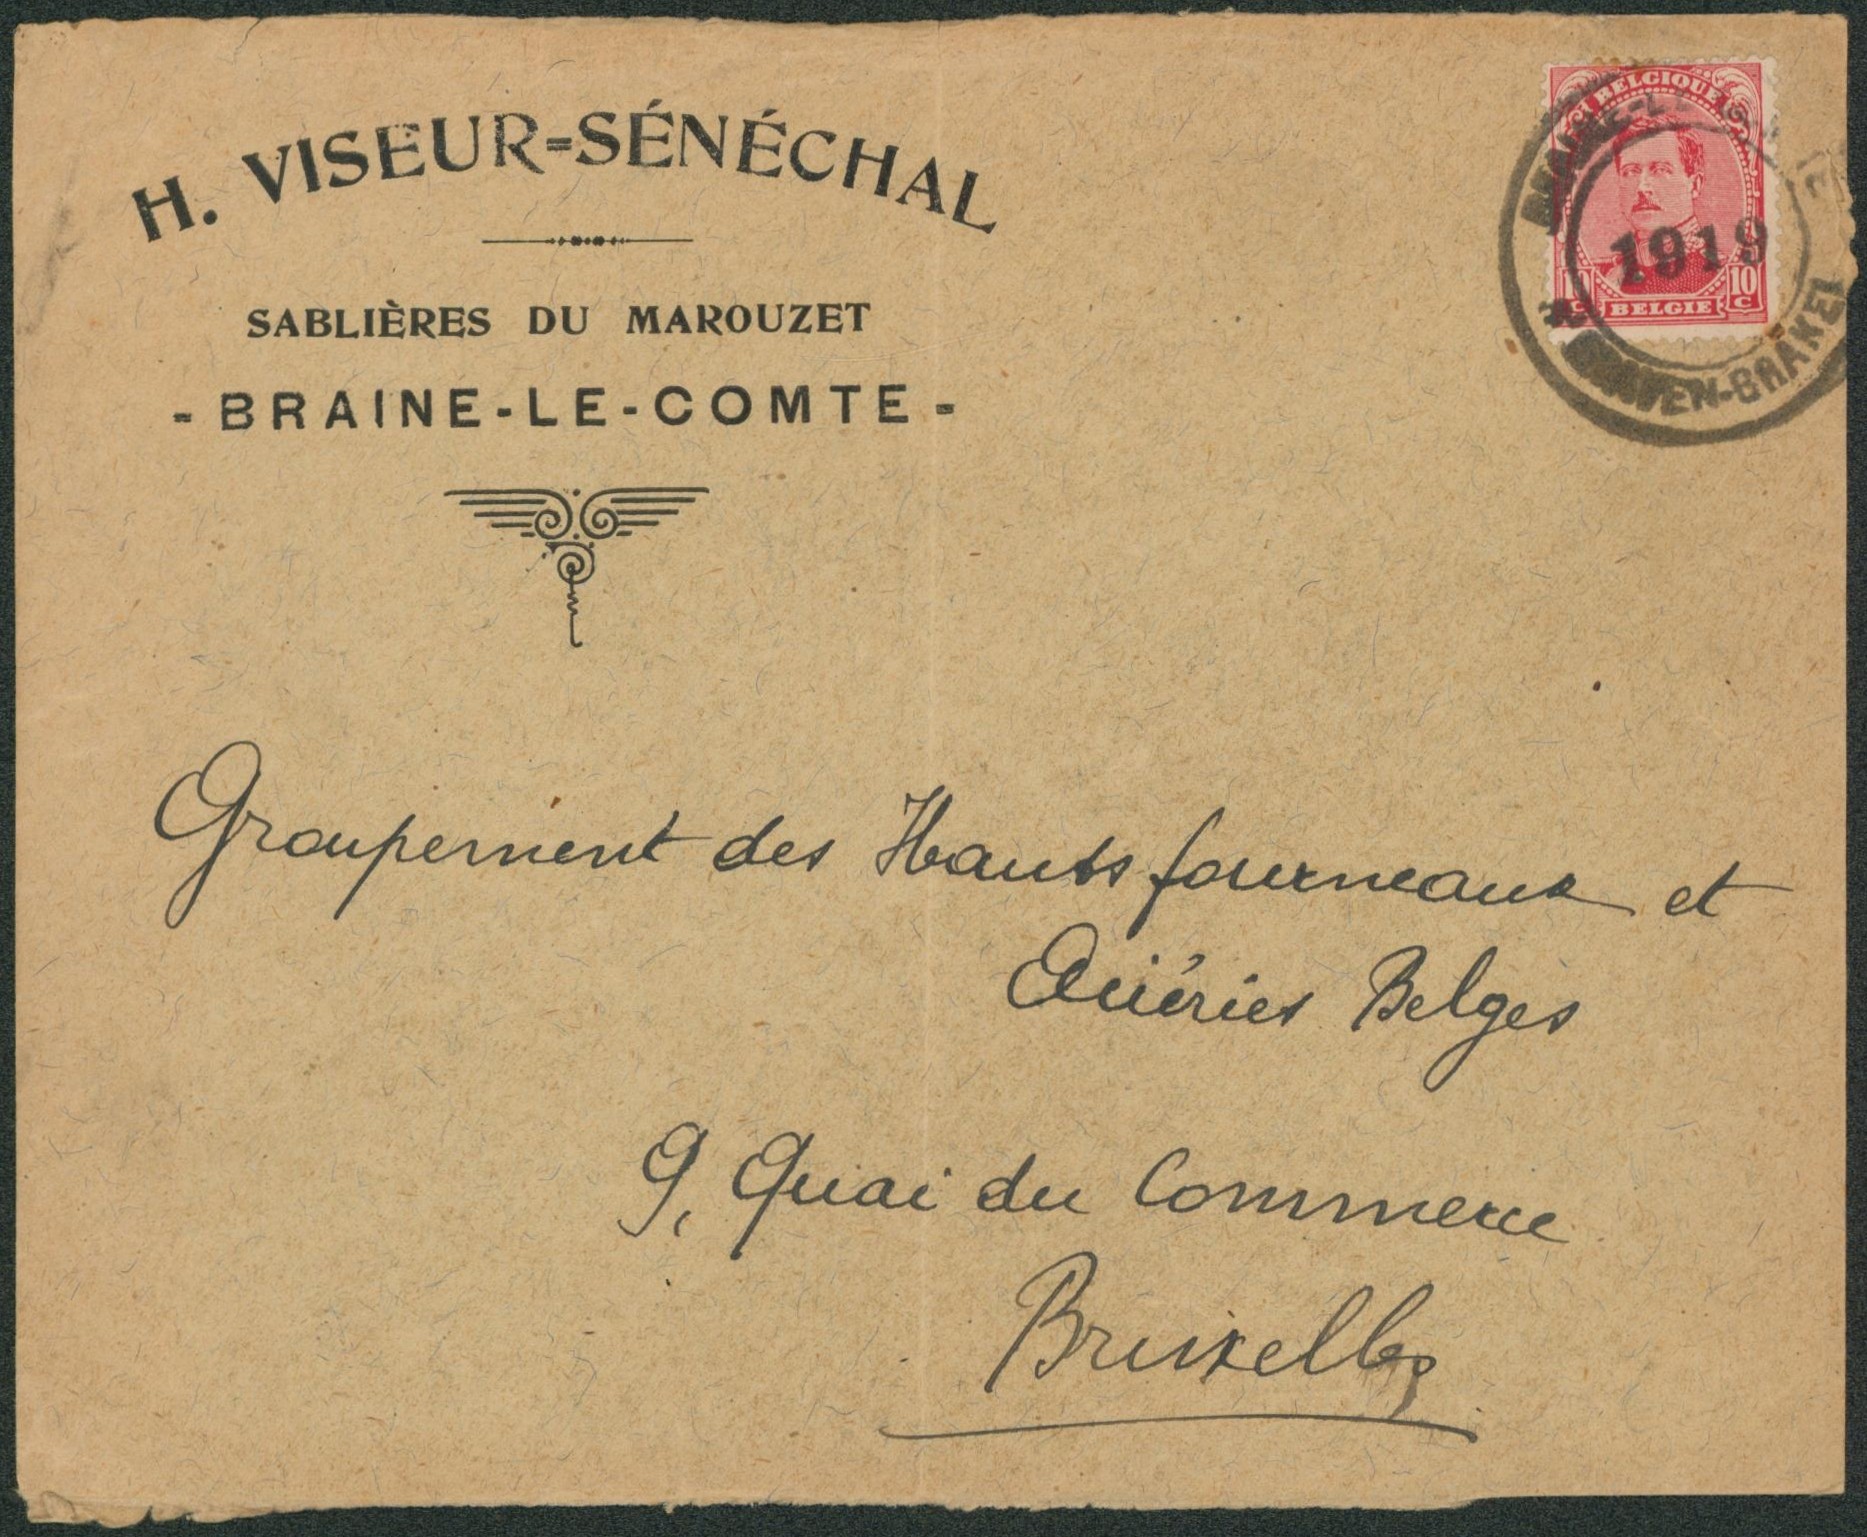 H. VISEUR=SÉNÉCHAL
SABLIÈRES DU MAROUZET
- BRAINE-LE-COMTE -
BELGIQUE
10 C
10 C
BELGIE
BRAINE-LE
1919
'S GRAVEN-BRAKEL
Groupement des Hauts fourneaux et
Aciéries Belges
9, Quai du Commerce
Bruxelles